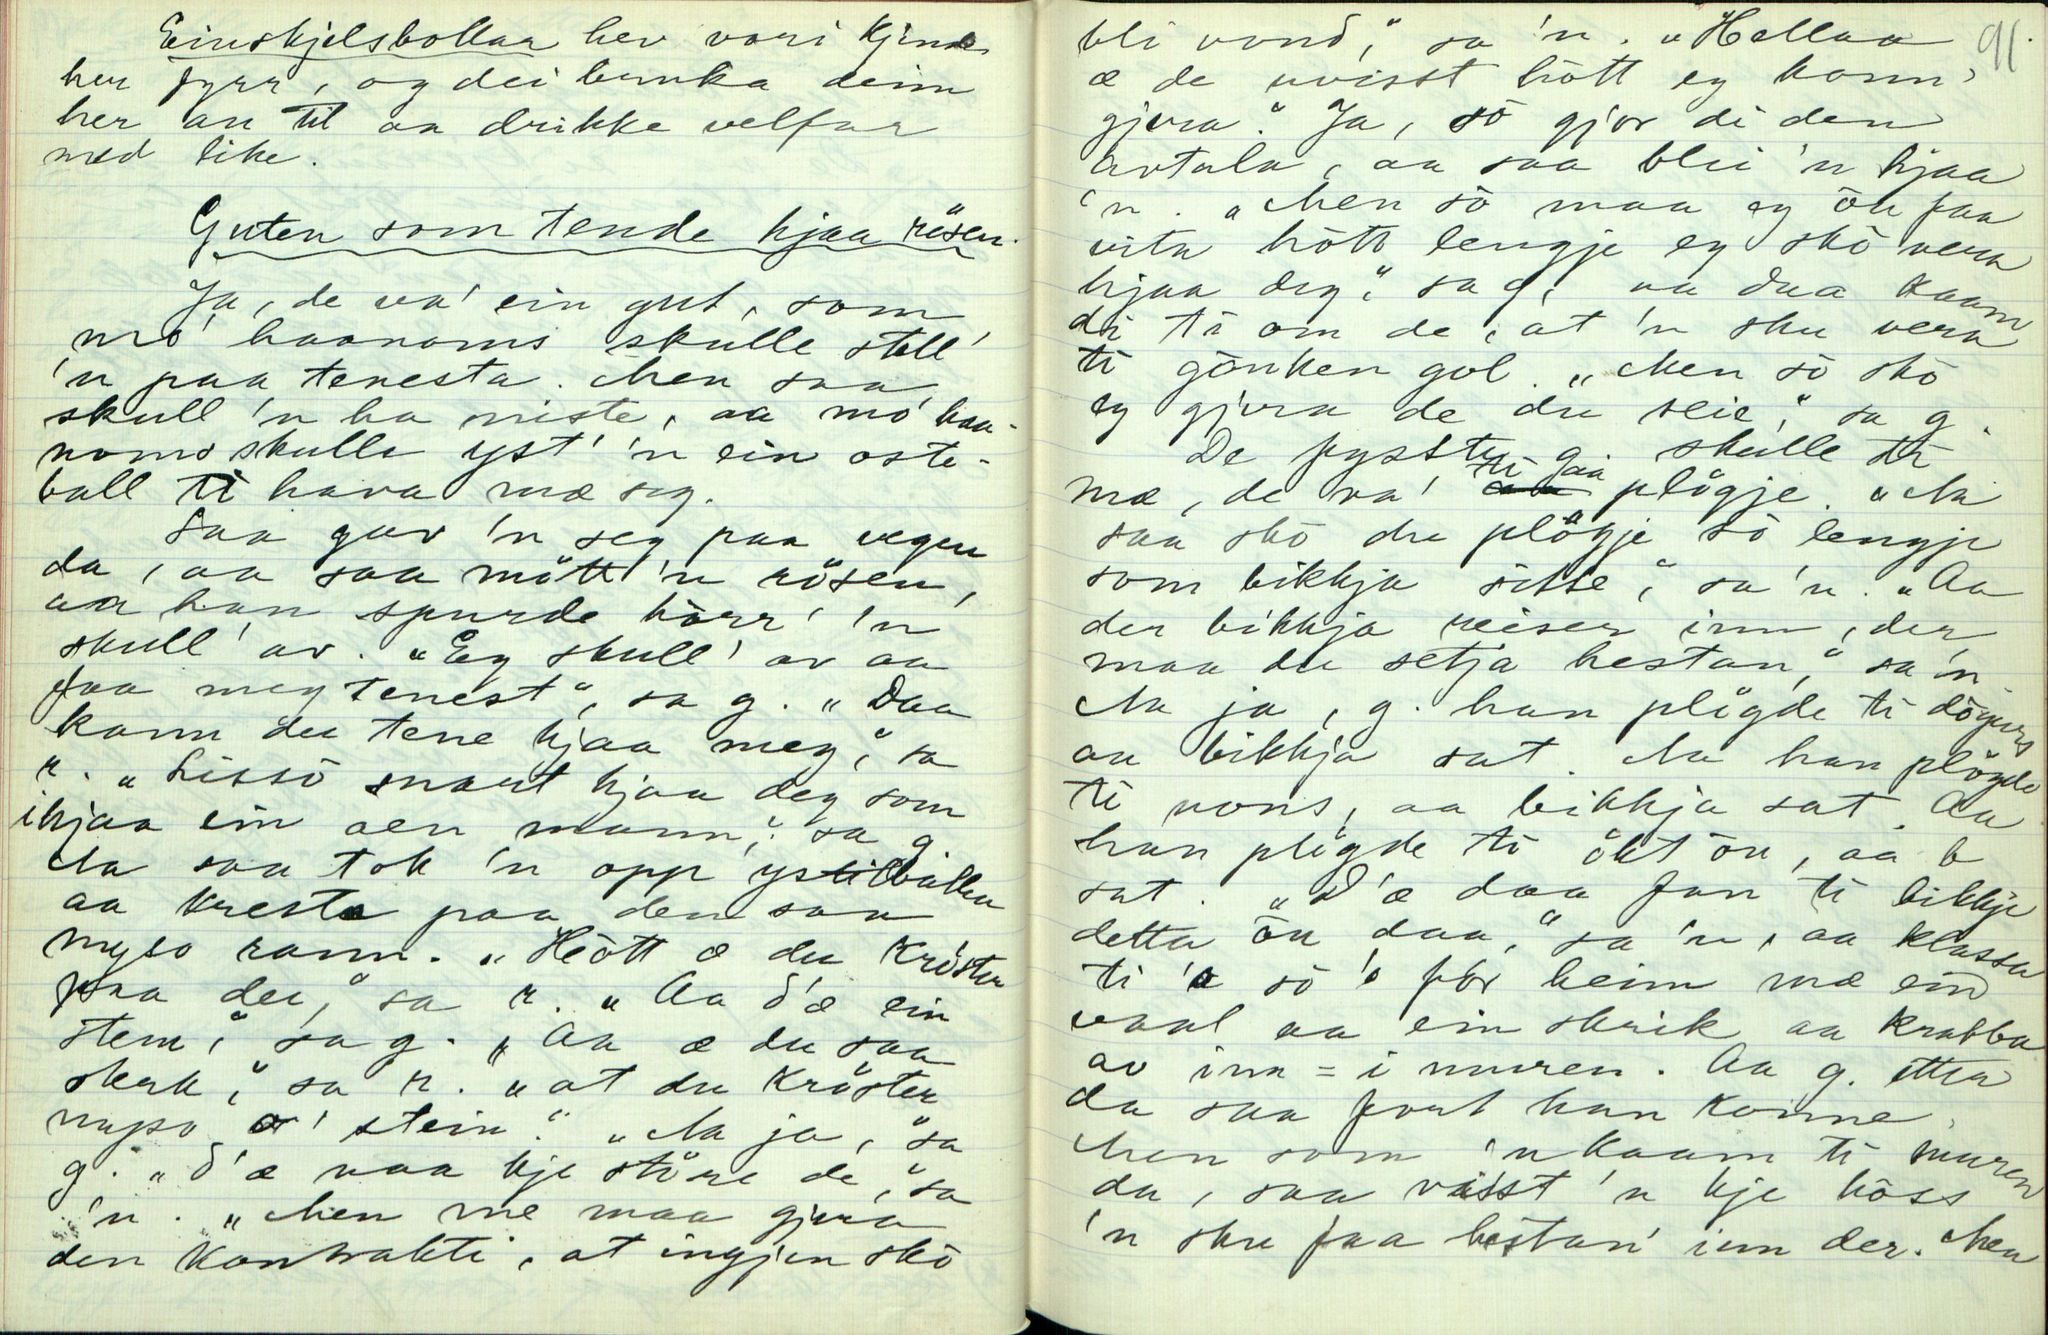 Einskjelsbollar hev vori kjende
her fyrr, og dei bruka deim
her au til aa drikke velfar
med like.
Guten som tende hjaa rösen.
Ja, de va' ein gut, som
mo' haanoms skulle still'
'n paa tenesta. Men saa
skull 'n ha niste, aa mo' haa-
noms skulle yst' 'n ein oste-
ball ti hava mæ seg.
Saa gav 'n seg paa vegen
da, aa saa mött 'n rösen,
aa han spurde hörr' 'n
skull' av. „Eg skull' av aa
faa meg tenest", sa g. „Daa
kann du tene hjaa meg," sa
r. „Lissö snart hjaa deg som
hjaa ein aen mann," sa g.
Na saa tok 'n opp ysteballen
aa kresta paa den saa
myso rann. „Hött æ du kröster
paa du," sa r. „Aa d'æ ein
stein," sa g. „Aa æ du saa
sterk," sa r. „at du kröster
myso o' stein." „Na ja," sa
g. „d'æ naa kje större de," sa
'n. „Men me maa gjera
den kontrakti, at ingjen skö
91.
bli vond," sa 'n. „Hellaa
æ de uvisst hött eg kann
gjera." Ja, sö gjor di den
avtala, aa saa blei 'n hjaa
'n. „Men sö maa eg öu faa
vita hött lengje eg skö vera
hjaa deg," sa g, aa daa kaam
di ti om de, at 'n sku vera
ti gauken gol. „Men sö skö
eg gjera de du seie," sa g.
De fyssty g. skulle ti
mæ, de va' ti gaa plögje. „Na
saa skö du plögje sö lengje
som bikkja sitte," sa 'n. „Aa
der bikkja reiser inn, der
maa du setja hestan," sa 'n.
Na ja, g. han plögde ti dögurs
aa bikkja sat. Na han plögde
ti nons, aa bikkja sat. Aa
han plögde ti ökt öu, aa b
sat. „D'æ daa fan ti bikkje
detta öu daa," sa 'n, aa klassa
ti 'a sö 'a for heim mæ ein
vaal aa ein skrik aa krabba
av inn i muren. Aa g. etter
da saa fort han konne.
Men som 'n kaam ti muren
da, saa visst 'n kje höss
'n sku faa hestan' inn der. Men